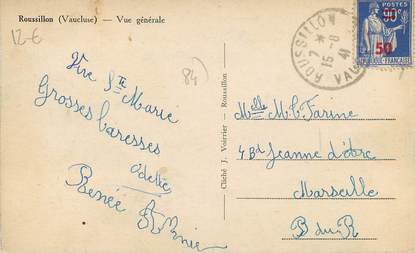 Roussillon (Vaucluse) — Vue générale
12-€
84)
Vive Ste Marie
Grosses Caresses
Odette
Renée
Cliché J. Voirrier - Roussillon
ROUSSILLON
7 *
15-8
41
VAU
90c
50
Melle M. L. Farine
4 Bd Jeanne d'Arc
Marseille
B du R